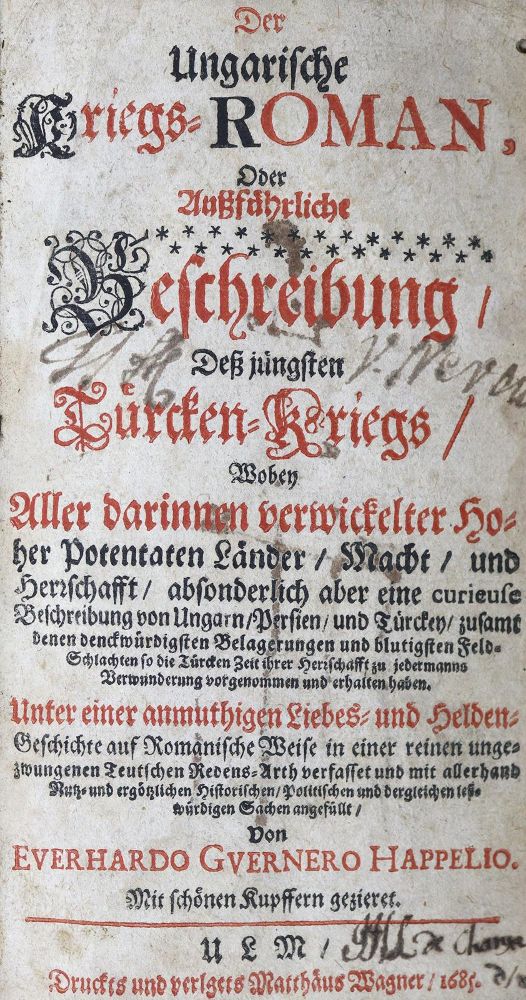 Der
Ungarische
Kriegs-ROMAN,
Oder
Außführliche
Beschreibung /
Deß jüngsten
Türcken-Kriegs /
Wobey
Aller darinnen verwickelter Ho-
her Potentaten Länder / Macht / und
Herrschafft / absonderlich aber eine curieuse
Beschreibung von Ungarn / Persien / und Türckey / zusamt
denen denckwürdigsten Belagerungen und blutigsten Feld-
Schlachten so die Türcken Zeit ihrer Herrschafft zu jedermanns
Verwunderung vorgenommen und erhalten haben.
Unter einer anmuthigen Liebes- und Helden-
Geschichte auf Romanische Weise in einer reinen unge-
zwungenen Teutschen Redens-Arth verfasset und mit allerhand
Nutz- und ergötzlichen Historischen / Politischen und dergleichen leß-
würdigen Sachen angefüllt /
Von
EVERHARDO GVERNERO HAPPELIO.
Mit schönen Kupffern gezieret.
ULM /
Druckts und verlgets Matthäus Wagner / 1685.